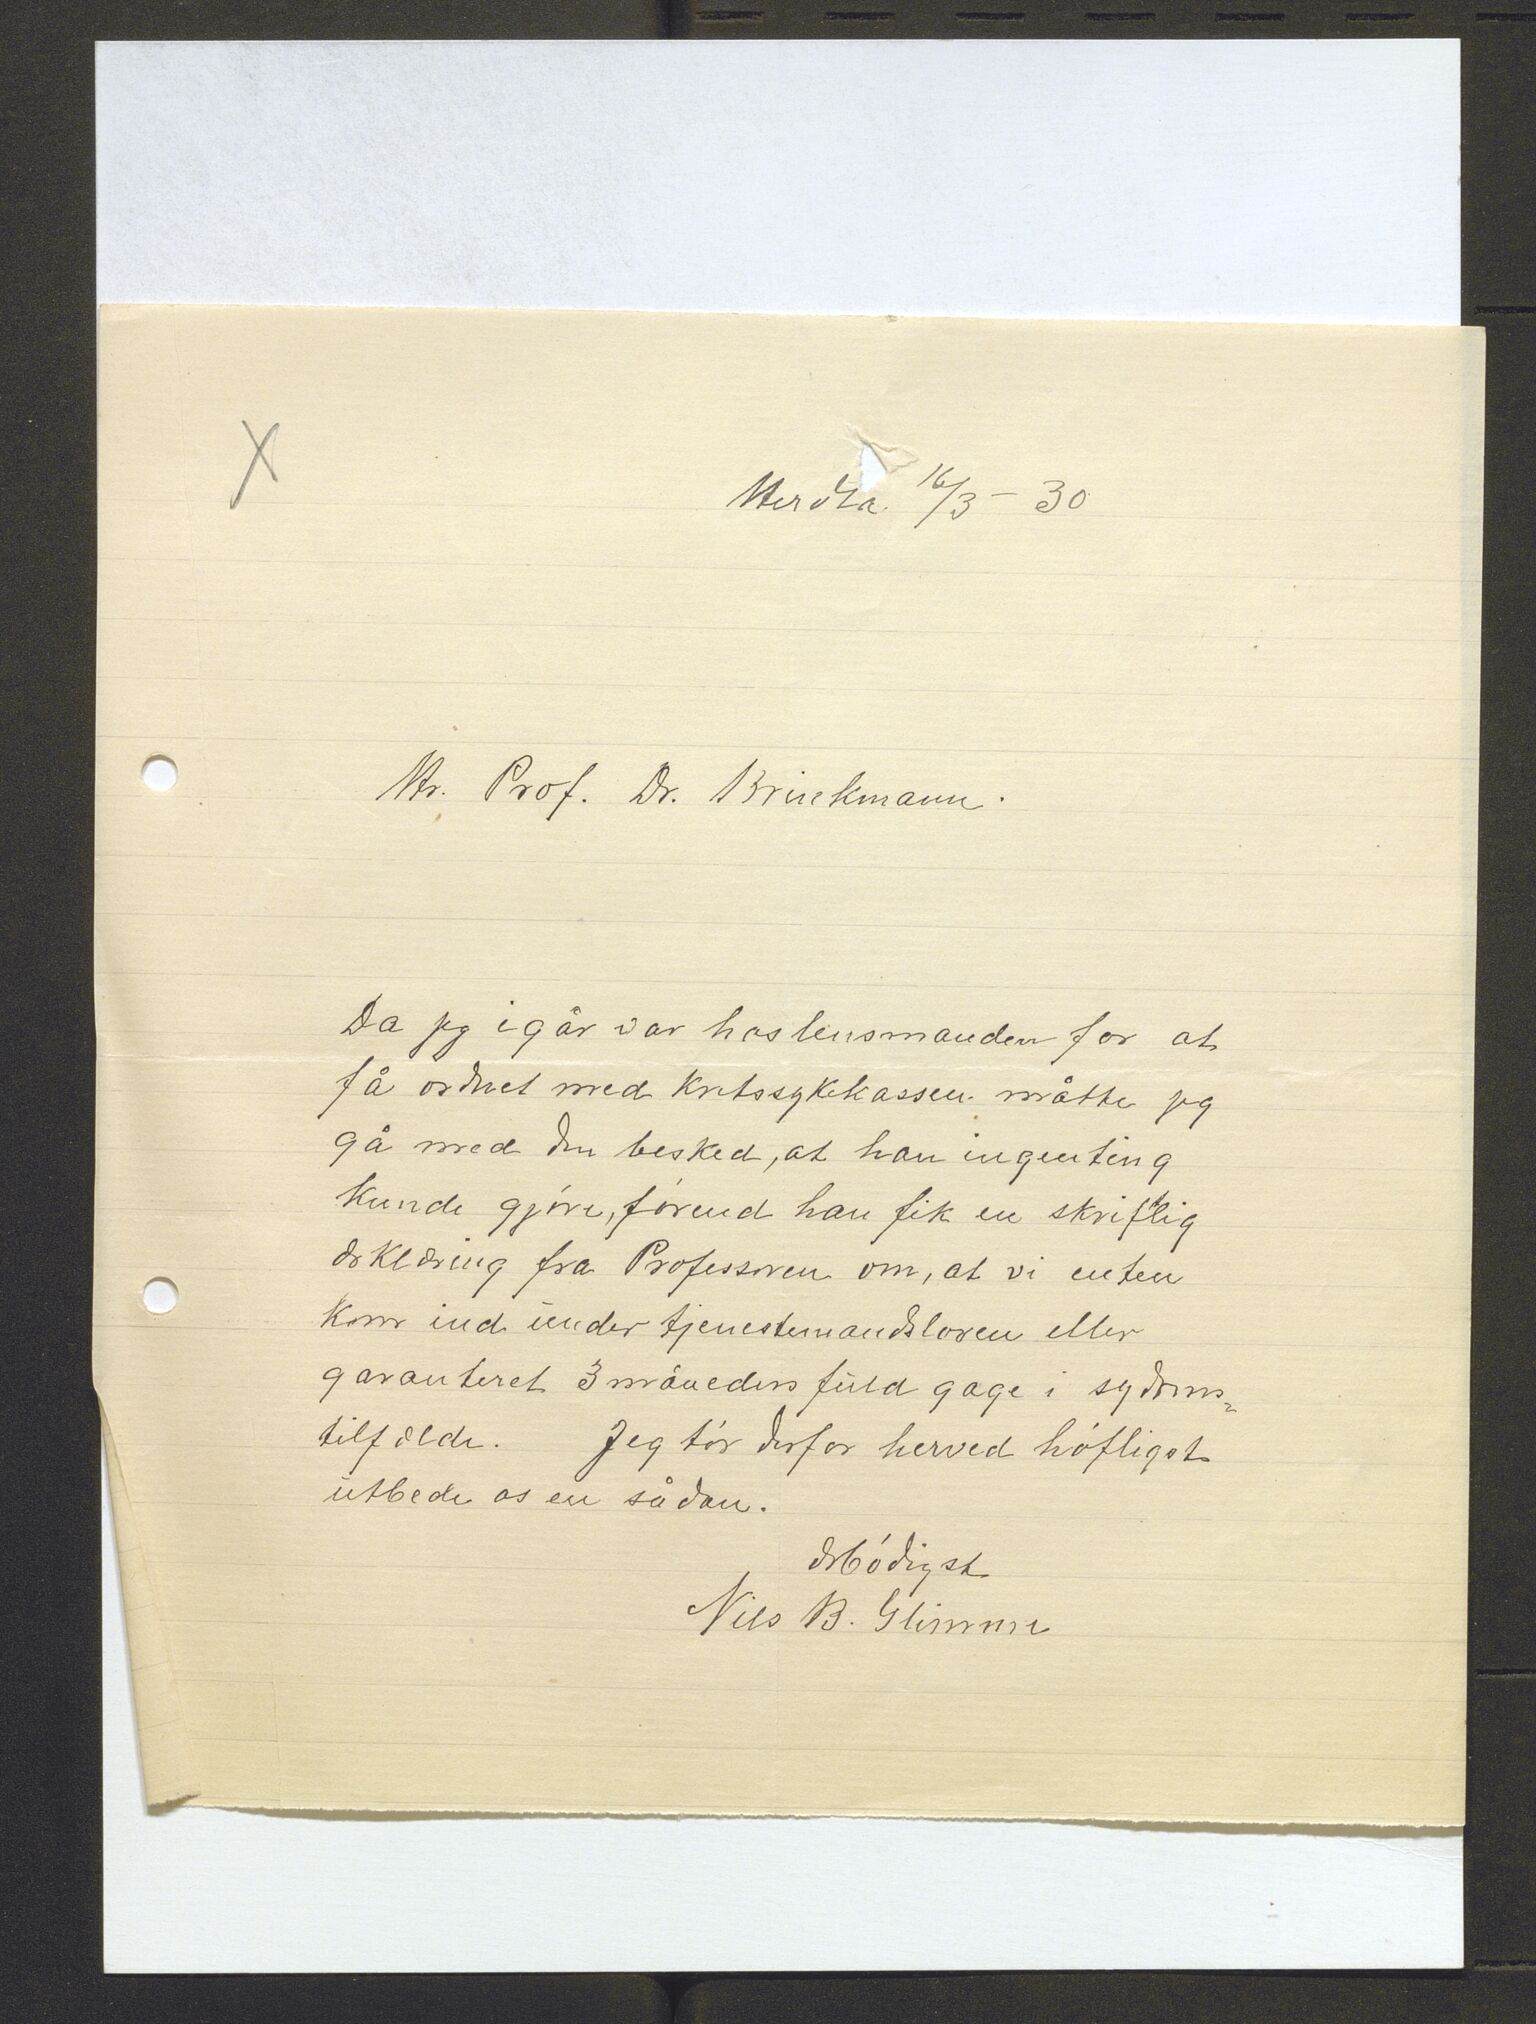 X
Herdla. 16/3 - 30
Hr. Prof. Dr. Brinkmann.
Da jeg igår var hos lensmanden for at
få ordnet med Kretssykekassen måtte jeg
gå med den besked, at han ingenting
kunde gjöre, förend han fik en skriftlig
erklæring fra Professoren om, at vi enten
kom ind under tjenestemandsloven eller
garanteret 3 måneders fuld gage i sygdoms-
tilfælde. Jeg tör derfor herved höfligst
utbede os en sådan.
Ærbödigst
Nils B. Glimme